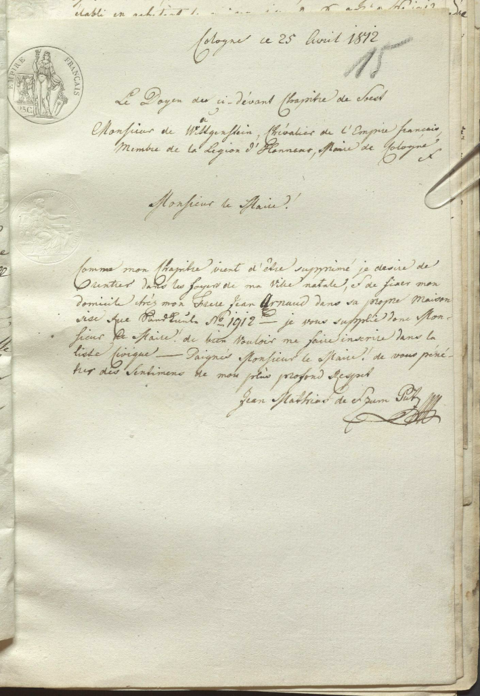 établi en
EMPIRE FRANÇAIS
Cologne ce 25 Avril 1812
15
Le Doyen du ci-devant Chapitre de Soest
à
Monsieur de Wittgenstein, Chevalier de l'Empire français,
Membre de la Legion d'Honneur, Maire de Cologne
Monsieur le Maire!
Comme mon Chapitre vient d'être supprimé je desire de
rentrer dans les foyers de ma Ville natale, & de fixer mon
domicile chés mon frere Jean Arnaud dans sa propre maison
sise Rue No. 1912 — je vous supplie donc Mon-
sieur le Maire de bien vouloir me faire inscrire dans la
liste Civique — Daignés Monsieur le Maire de vous péné-
trer des Sentimens de mon plus profond Respet
Jean Mathias de